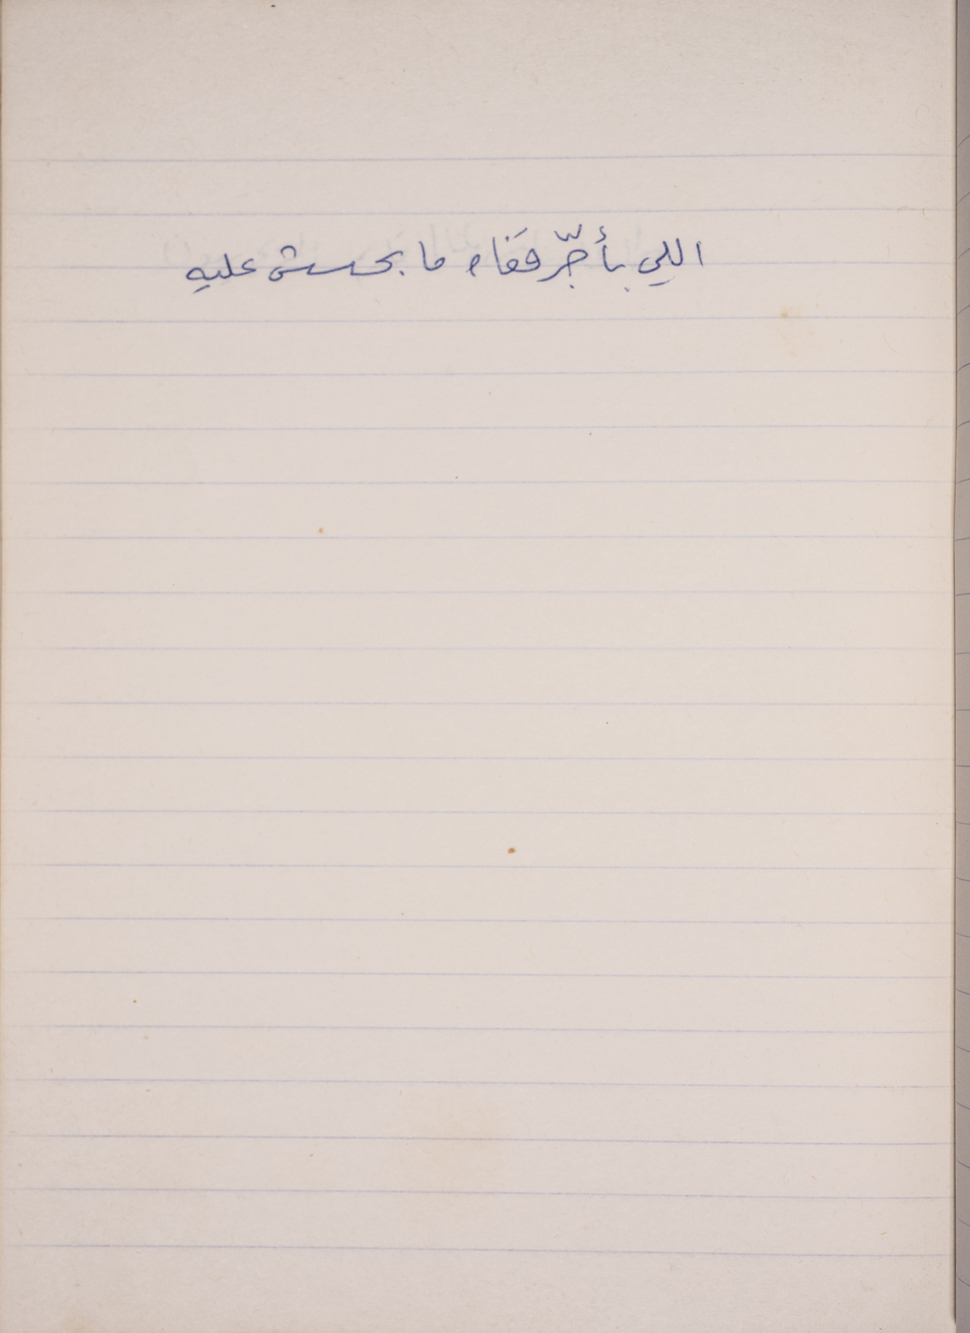 اللي بأجّر قفاه ما بحسش عليه